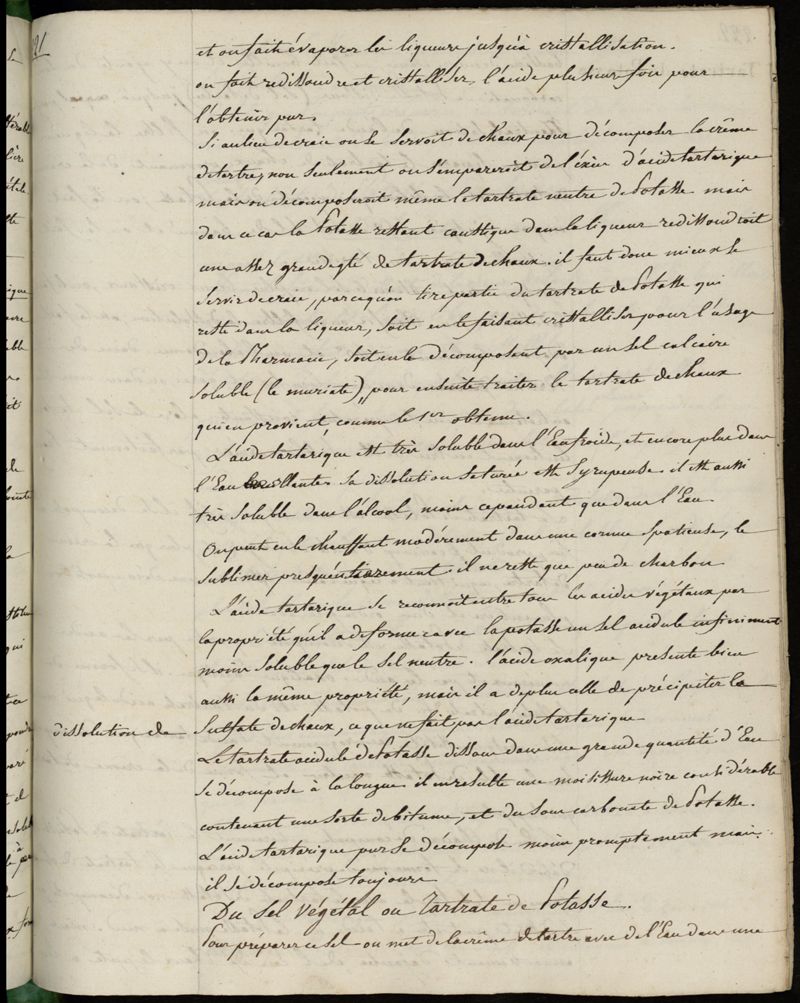 et on fait évaporer les liqueurs jusqu'à cristallisation.
on fait redissoudre et cristalliser l'acide plusieurs fois pour
l'obtenir pur.
Si au lieu de craie on se servoit de chaux pour décomposer la crême
de tartre, non seulement on s'empareroit de l'éxcès d'acide tartarique
mais on décomposeroit même le tartrate neutre de Potasse mais
dans ce cas la Potasse restant caustique dans la liqueur redissoudroit
une assez grande qté de tartrate de chaux. il faut donc mieux se
servir de craie, parcequ'on tire partie du tartrate de Potasse qui
reste dans la liqueur, soit en le faisant cristalliser pour l'usage
de la Pharmacie, soit en le décomposant par un sel calcaire
soluble (le muriate), pour ensuite traiter le tartrate de chaux
qui en provient, comme le 1er obtenu.
L'acide tartarique est très soluble dans l'Eau froide, et encore plus dans
l'Eau bouillante. Sa dissolution saturée est Syrupeuse. il est aussi
très soluble dans l'álcool, moins cependant que dans l'Eau.
On peut en le chauffant modérement dans une cornue spatieuse, le
sublimer presqu'entierement. il ne reste que peu de charbon
L'acide tartarique se reconnoit entre tous les acides végétaux par
la propriété qu'il a de former avec la potasse un sel acidule infiniment
moins soluble que le sel neutre. l'acide oxalique presente bien
aussi la même propriété, mais il a de plus celle de précipiter la
dissolution de
Sulfate de chaux, ce que ne fait pas l'acide tartarique
Le tartrate acidulé de Potasse dissous dans une grande quantité d'Eau
se décompose à la longue. il en resulte une moisissure noire considérable
contenant une sorte de bitume, et du sous carbonate de Potasse.
L'acide tartarique pur se décompose moins promptement mais
il se décompose toujours
Du Sel Végétal ou Tartrate de Potasse.
Pour préparer ce sel on met de la crême de tartre avec de l'Eau dans une